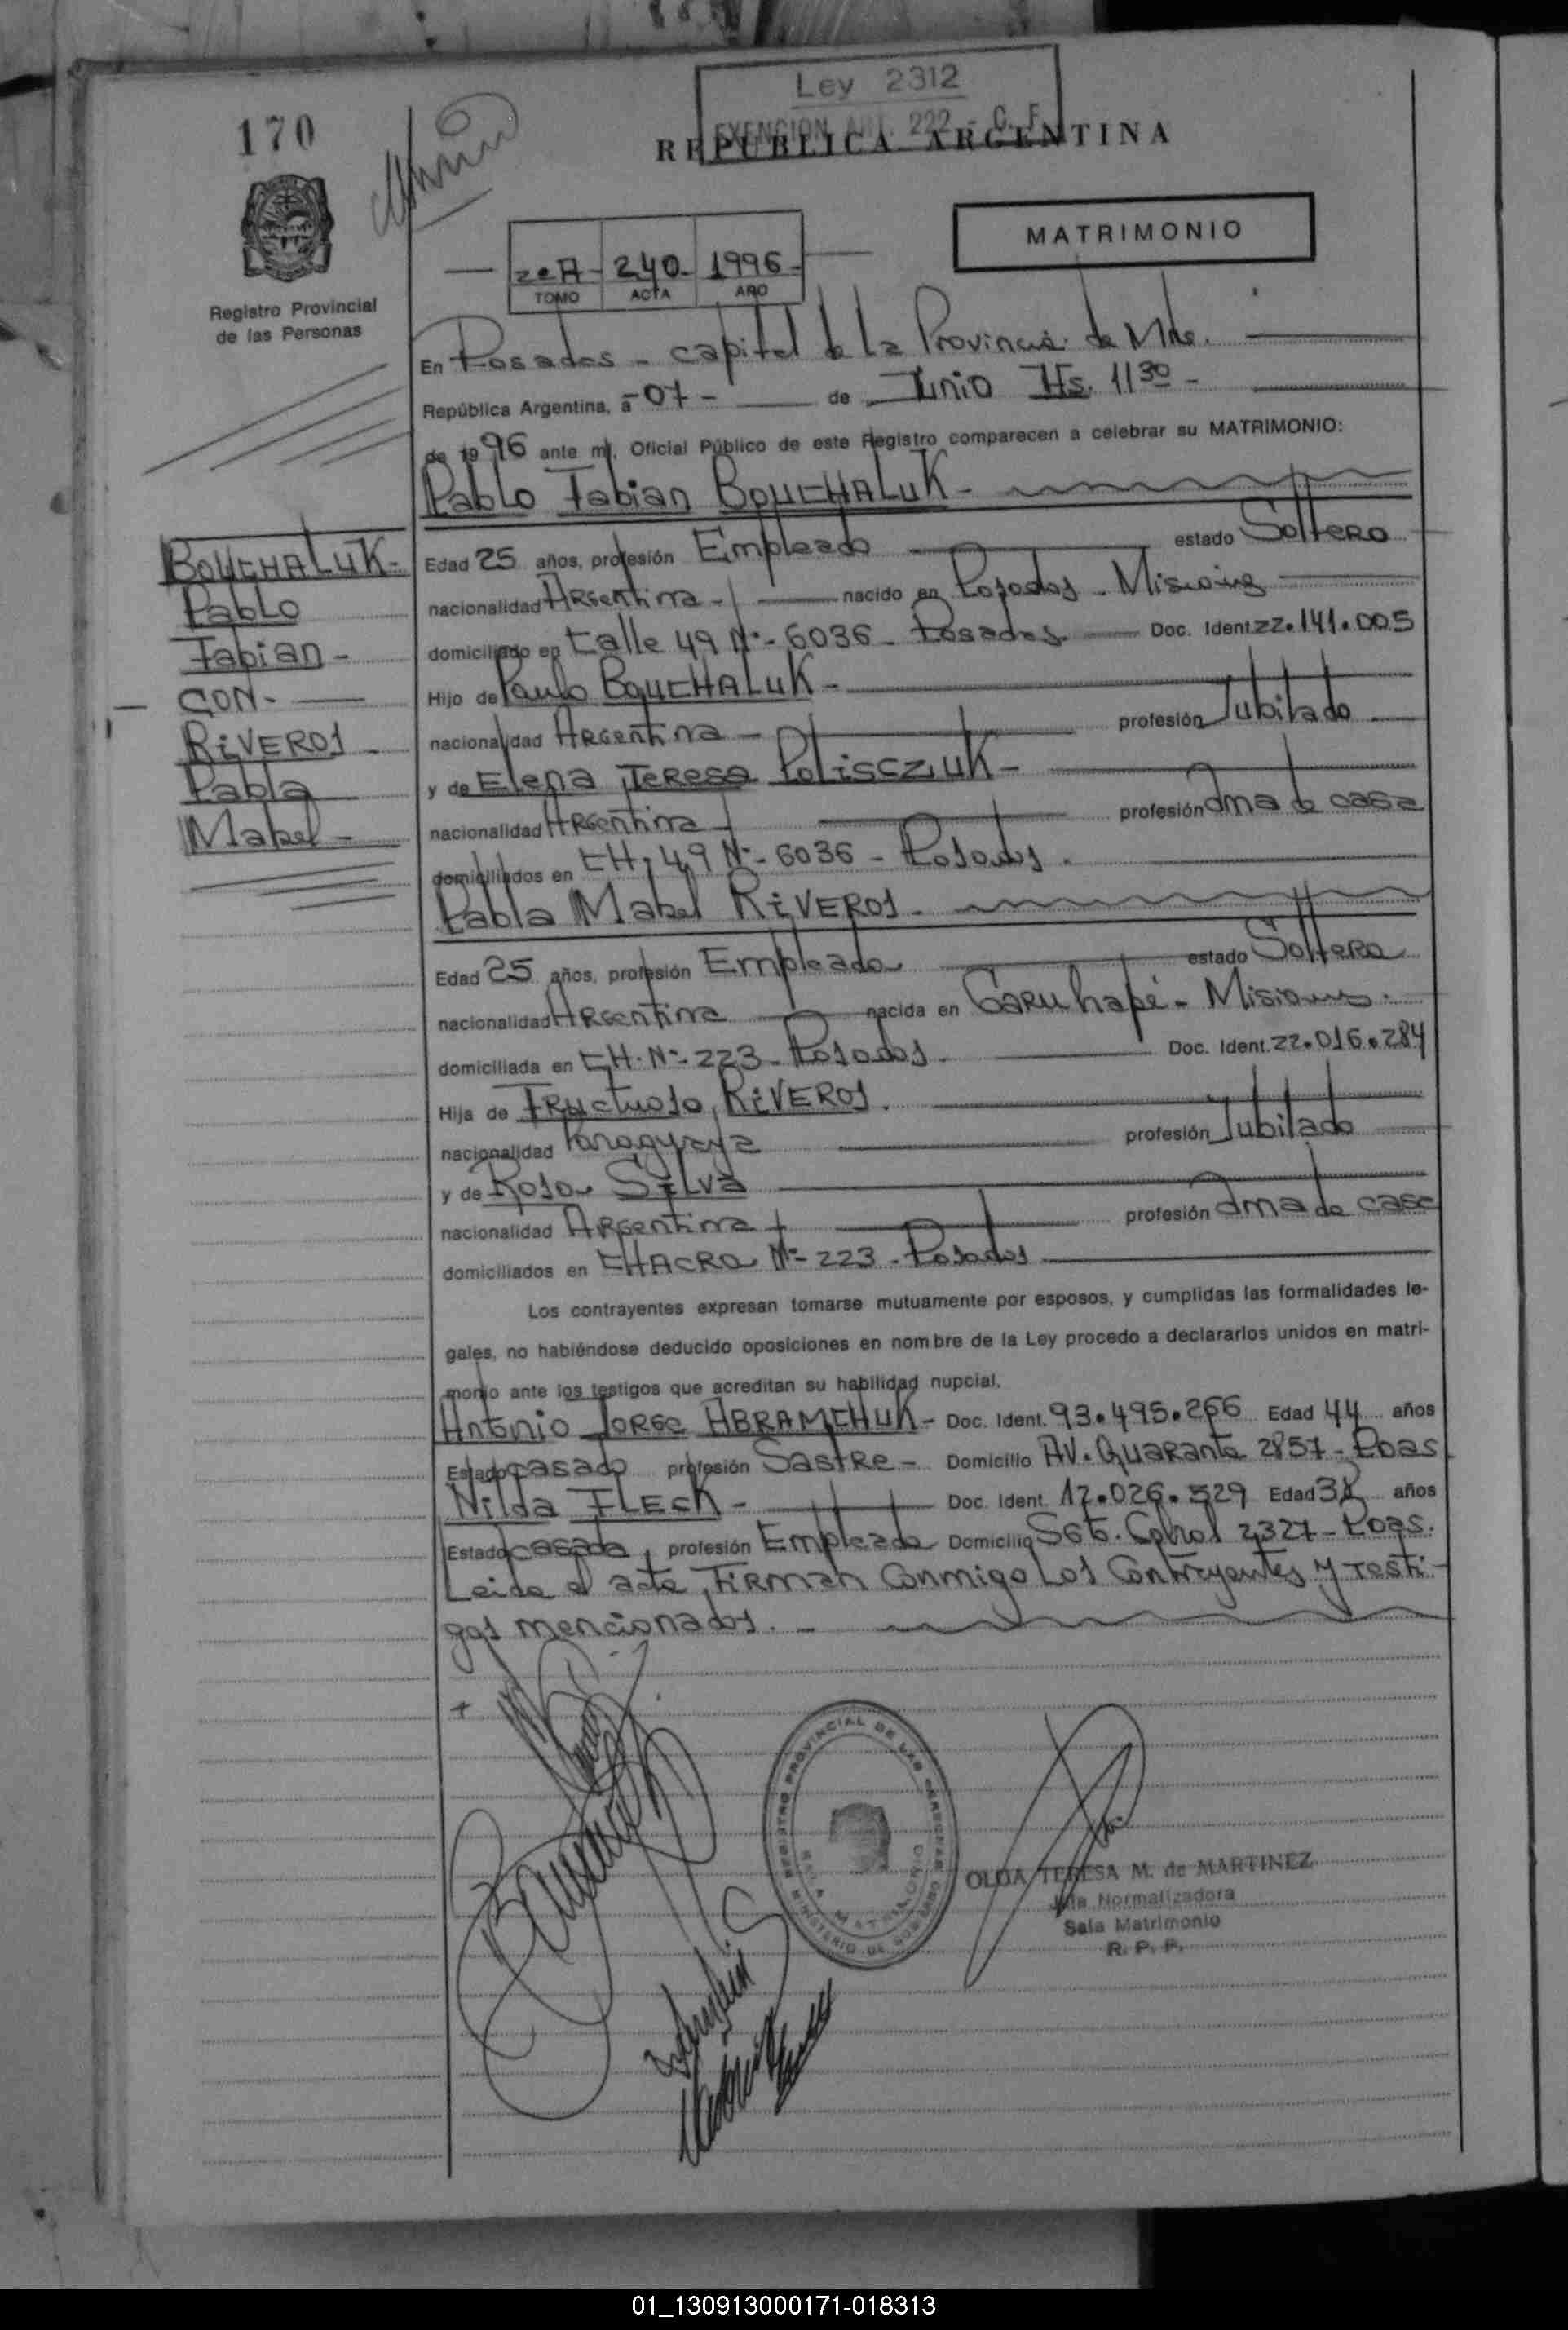 Ley 2312
EXENCION ART. 222 - C. F.
170
REPUBLICA ARGENTINA
MATRIMONIO
2oA - 240 - 1996 -
TOMO ACTA AÑO
Registro Provincial
de las Personas
En Posadas - capital de la Provincia de Mnes.
República Argentina, a - 07 - de Junio Hs. 11 30 -
de 1996 ante mí, Oficial Público de este Registro comparecen a celebrar su MATRIMONIO:
Pablo Fabian BOUCHALUK -
BOUCHALUK -
Pablo
Fabian -
CON -
RiVEROS
Pabla
Mabel -
Edad 25 años, profesión Empleado estado Soltero
nacionalidad Argentina - nacido en Posadas - Misiones
domiciliado en Calle 49 Nº - 6036 - Posadas Doc. Ident. 22.141.005
Hijo de Paulo BOUCHALUK -
nacionalidad Argentina - profesión Jubilado
y de Elena Teresa POLISCZIUK -
nacionalidad Argentina profesión Ama de casa
domiciliados en CH. 49 Nº - 6036 - Posadas.
Pabla Mabel RiVEROS -
Edad 25 años, profesión Empleada estado Soltera
nacionalidad Argentina nacida en Garuhapé - Misiones.
domiciliada en CH. Nº - 223 - Posadas. Doc. Ident. 22.016.284
Hija de Fructuoso RiVEROS.
nacionalidad Paraguaya profesión Jubilado
y de Rosa Silva
nacionalidad Argentina profesión Ama de casa
domiciliados en CHACRA Nº - 223 - Posadas
Los contrayentes expresan tomarse mutuamente por esposos, y cumplidas las formalidades le-
gales, no habiéndose deducido oposiciones en nombre de la Ley procedo a declararlos unidos en matri-
monio ante los testigos que acreditan su habilidad nupcial.
Antonio Jorge ABRAMCHUK - Doc. Ident. 93.495.266 Edad 44 años
Estado casado profesión Sastre - Domicilio AV. Quaranta 2857 - Pdas
Nilda FLECK - Doc. Ident. 12.026.529 Edad 38 años
Estado casada, profesión Empleada Domicilio Sgto. Cabral 2327 - Pdas.
Leida el acta, Firman Conmigo Los Contrayentes y Testi-
gos mencionados. -
REGISTRO PROVINCIAL DE LAS PERSONAS
SALA MATRIMONIO
MINISTERIO DE GOBIERNO
OLGA TERESA M. de MARTINEZ
Jefa Normalizadora
Sala Matrimonio
R. P. P.
01_130913000171-018313